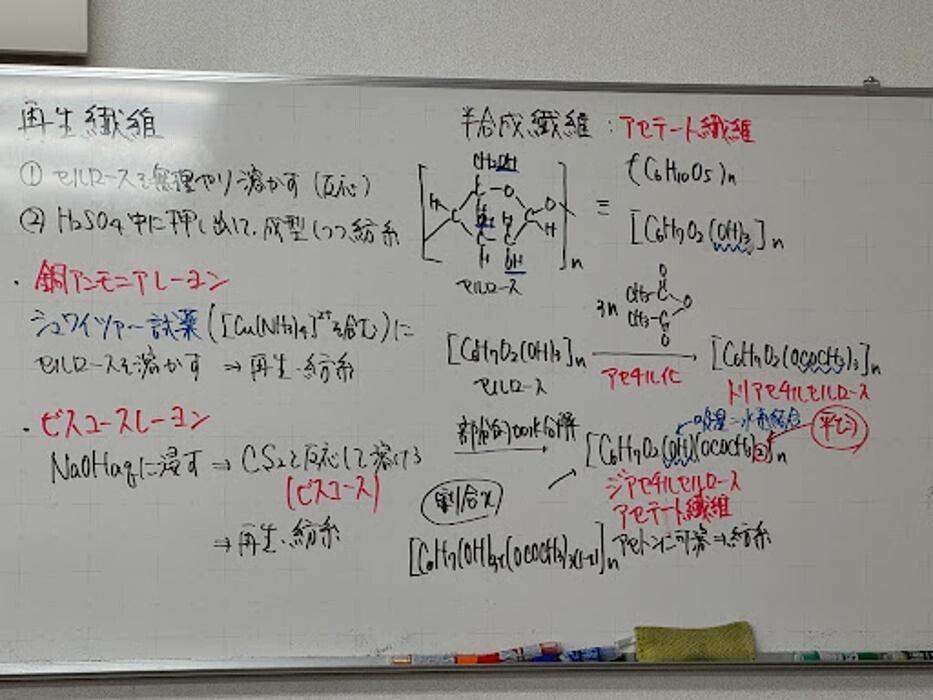 再生繊維
① セルロースを無理やり溶かす (反応)
② H₂SO₄中に押し出して、成型しつつ紡糸
・銅アンモニアレーヨン
シュワイツァー試薬 ([Cu(NH₃)₄]²⁺を含む)に
セルロースを溶かす ⇒ 再生・紡糸
・ビスコースレーヨン
NaOHaqに浸す ⇒ CS₂と反応して溶ける
(ビスコース)
⇒ 再生・紡糸
半合成繊維：アセテート繊維
CH₂OH
C O
H C H C O
OH H
C C H
H OH
n
セルロース
≡
(C₆H₁₀O₅)n
[C₆H₇O₂(OH)₃]n
O
CH₃-C
3n O
CH₃-C
O
[C₆H₇O₂(OH)₃]n → [C₆H₇O₂(OCOCH₃)₃]n
セルロース
アセチル化
トリアセチルセルロース
部分的加水分解
水素結合
平均
[C₆H₇O₂(OH)(OCOCH₃)₂]n
ジアセチルセルロース
アセテート繊維
割合x
[C₆H₇(OH)₃ₓ(OCOCH₃)₃₍₁₋ₓ₎]n
アセトンに可溶 → 紡糸